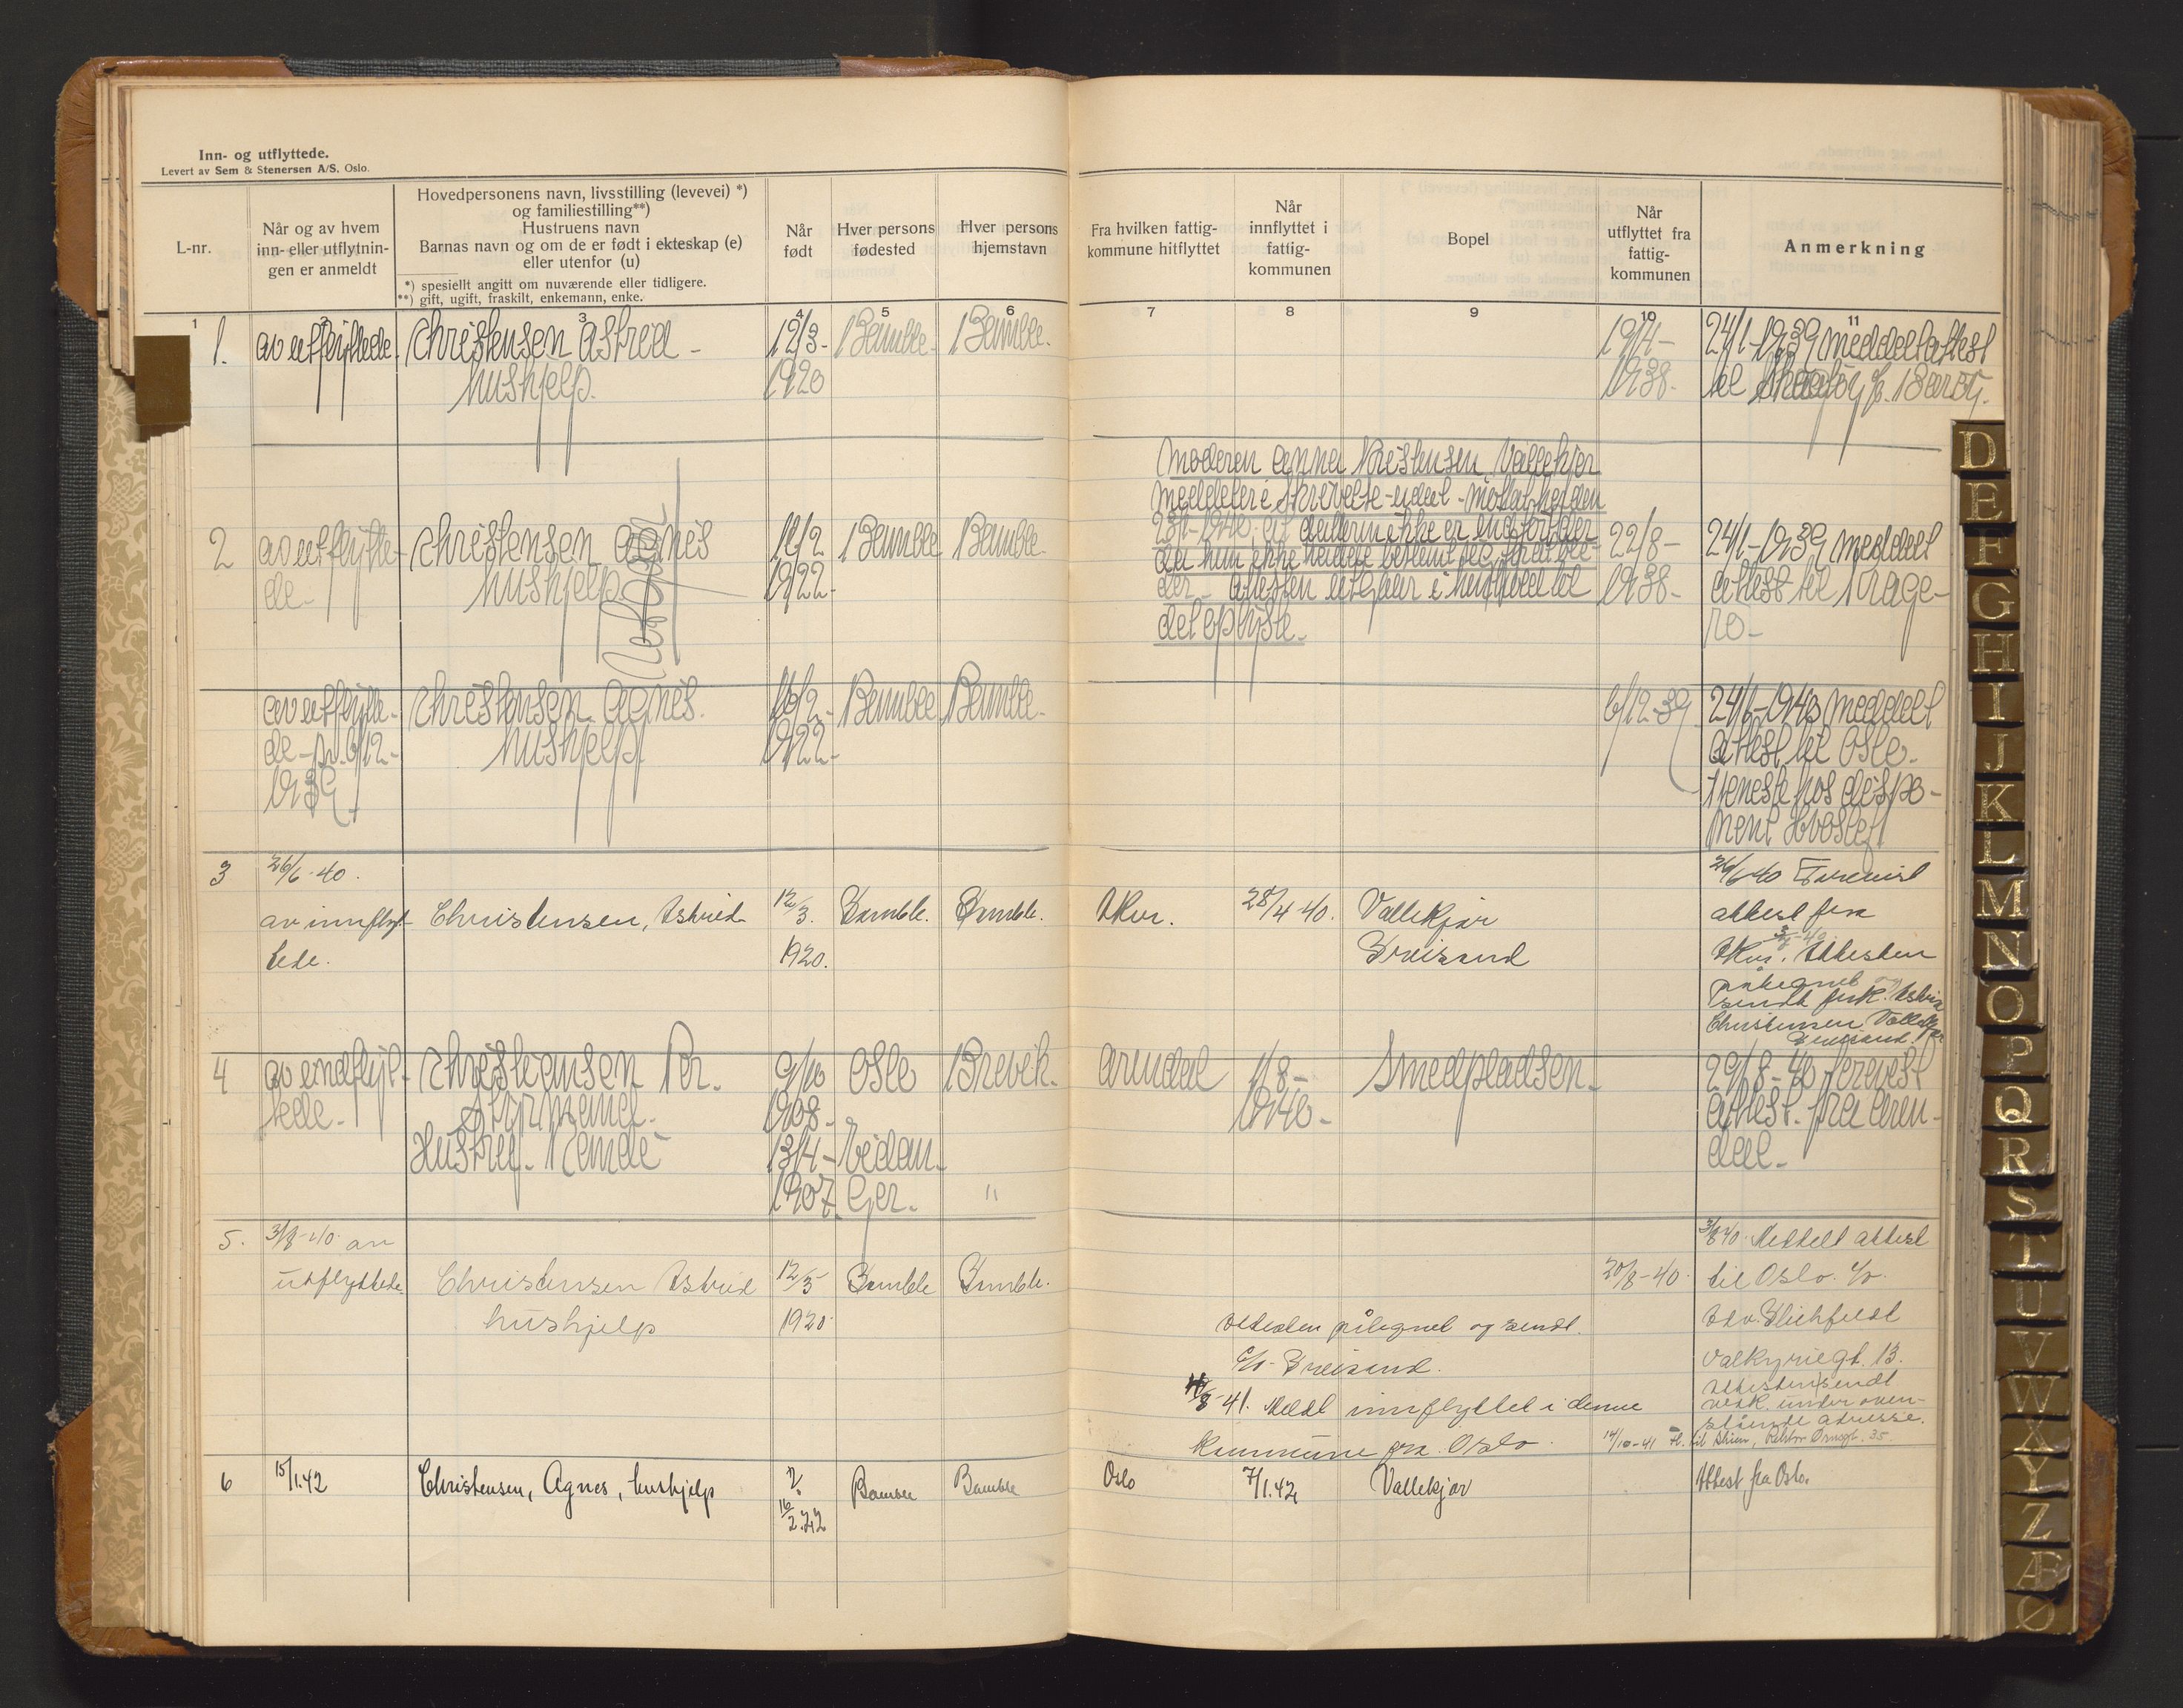 Inn- og utflyttede.
Levert av Sem & Stenersen A/S. Oslo.
L-nr.
Når og av hvem
inn- eller utflytnin-
gen er anmeldt
Hovedpersonens navn, livsstilling (levevei) *)
og familiestilling**)
Hustruens navn
Barnas navn og om de er født i ekteskap (e)
eller utenfor (u)
*) spesiellt angitt om nuværende eller tidligere.
**) gift, ugift, fraskilt, enkemann, enke.
Når
født
Hver persons
fødested
Hver persons
hjemstavn
Fra hvilken fattig-
kommune hitflyttet
Når
innflyttet i
fattig-
kommunen
Bopel
Når
utflyttet fra
fattig-
kommunen
Anmerkning
1 2 3 4 5 6 7 8 9 10 11
1. av utflyttede. Christensen Astrid - 12/3- Bamble. Bamble. 19/4- 24/1-1939 meddelt attest
hushjelp. 1920 1938. til
Moderen Anna Kristensen Vallekjær
meddeler i skrivelse
2 av utflytte- Christensen Agnis 16/2 Bamble Bamble. 22/8- 24/1-1939 meddelt
de- hushjelp 1922- 1938- attest til Krage-
det oplyste. rø-
av utflytte- Christensen Agnes. 16/2- Bamble Bamble. 6/12-39 24/1-1940 meddelt
de- 6/12- hushjelp 1922- attest til Oslo.
1939 tjeneste hos dispo-
nent
3 26/6-40. 26/6 40 Forevist
av innflyt- Christensen, Astrid 12/3. Bamble. Bamble. Aker. 28/4 40. Vallekjær attest fra
tede. 1920. Breisand Aker. Attesten
påtegnet og
sendt frk. Astrid
Christensen Vallekjær
Breisand.
4 av indflyt- Christiansen Per. 9/10 Oslo Brevik. Arendal 1/8- Smedpladsen. 29/8-40 forevist
tede- styrmand. 1908- 1940- attest. fra Aren-
Hustru. 13/4- dal-
1907. "
5. 3/8-40 av 3/8 40. Meddelt attest
utflyttede Christensen Astrid 12/3 Bamble Bamble. 20/8-40. til Oslo. c/o.
hushjelp 1920. Attesten påtegnet og sendt. Adv. Blichfeldt
c/o Breisand. Valkyriegt. 13.
Attesten sendt
8-41. Meldt innflyttet i denne vedk. under oven-
stående adresse.
kommune fra Oslo. 14/10-41 Fl. til Skien, 35.
6 15/1.42 Christensen, Agnes, hushjelp 16/2.22 Bamble Bamble Oslo 7/1.42 Vallekjær Attest fra Oslo.
D
E
F
G
H
I
J
K
L
M
N
O
P
Q
R
S
T
U
V
W
X
Y
Z
Æ
Ø